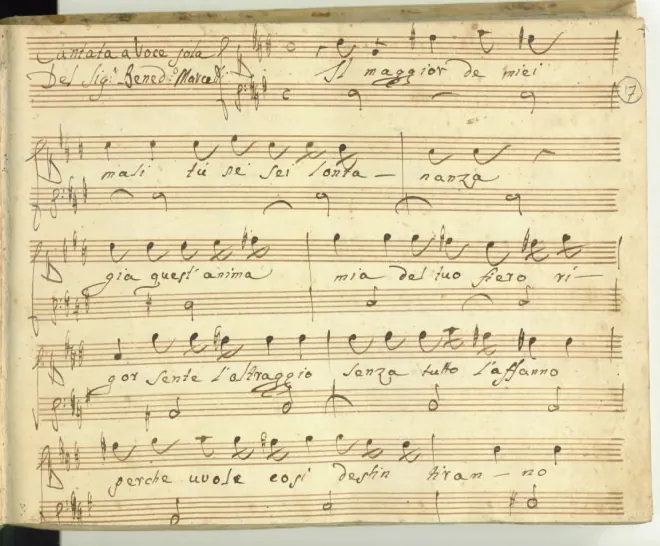 Cantata a Voce sola
Del Sig.r Bened.o Marcello
Il maggior de miei
17
mali tù ne sei lonta — nanza
già quest'anima mia del tuo fiero ri —
gor sente l'oltraggio senza tutto l'affanno
perche vuole così destin tiran — no